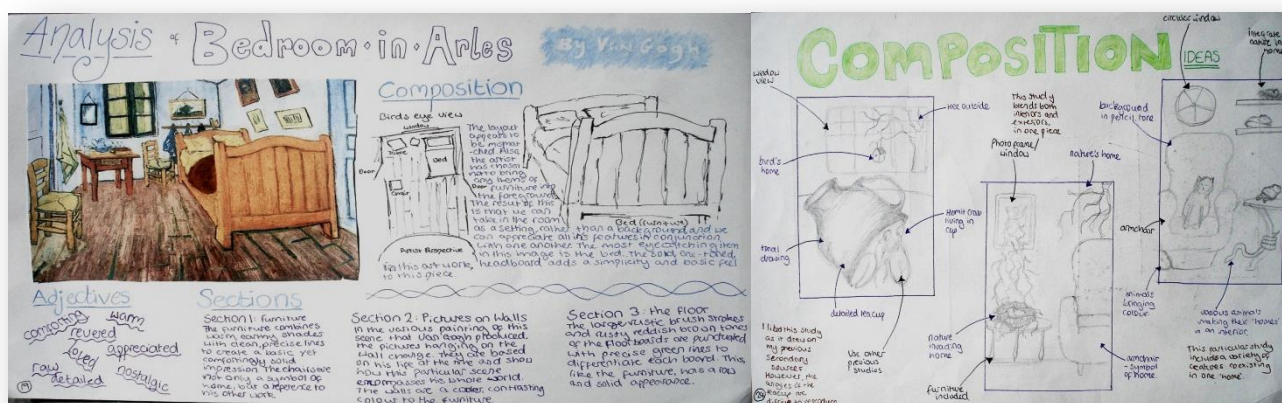 Analysis of Bedroom·in·Arles
By Van Gogh
Composition
Birds eye view
window
Table
Bed
Door
Chair
Door
Artist Perspective
The layout
appears to
be mismat
-ched. Also,
the artist
has chosen
not to bring
any items of
furniture into
the foreground
The result of this
is that we can
take in the room
as a setting, rather than a background and we
can appreciate all its features in conjunction
with one another. The most eyecatching item
in this image is the bed. The solid, one-toned,
headboard adds a simplicity and basic feel
to this piece
Bed (furniture)
Adjectives
comforting
warm
revered
loved
appreciated
raw
nostalgic
detailed
Sections
Section 1: Furniture
The furniture combines
warm, earthy, shades
with clean, precise lines
to create a basic yet
comfortingly solid
impression. The chairs are
not only a symbol of
home, but a reference to
his other work.
Section 2: Pictures on Walls
In the various painting of this
scene that Van Gogh produced,
the pictures hanging on the
wall change. They are based
on his life at the time and show
how this particular scene
encompasses his whole world.
The walls are a cooler, contrasting
colour to the furniture
Section 3: the Floor
The large rustic brush strokes
and rusty reddish brown tones
of the floorboards are punctuated
with precise green lines to
differentiate each board. This,
like the furniture, has a raw
and solid appearance.
COMPOSITION
IDEAS
window
view
tree outside
bird's
home
Hermit crab
living in
cup
tonal
drawing
detailed teacup
Use other
previous
studies
I liked this study
as it drew on
my previous
secondary
sources.
However, the
angles of the
teacup are
This study
blends both
interiors and
exteriors,
in one piece
Photo frame/
window
nature's home
nature
invading
home
furniture
included
armchair
- symbol
of home
circular window
integrate
nature in
home
background
in pencil tone
armchair
animals
bringing
colour
various animals
making their 'homes'
in an interior.
This particular study
includes a variety of
creatures co existing
in one 'home'.